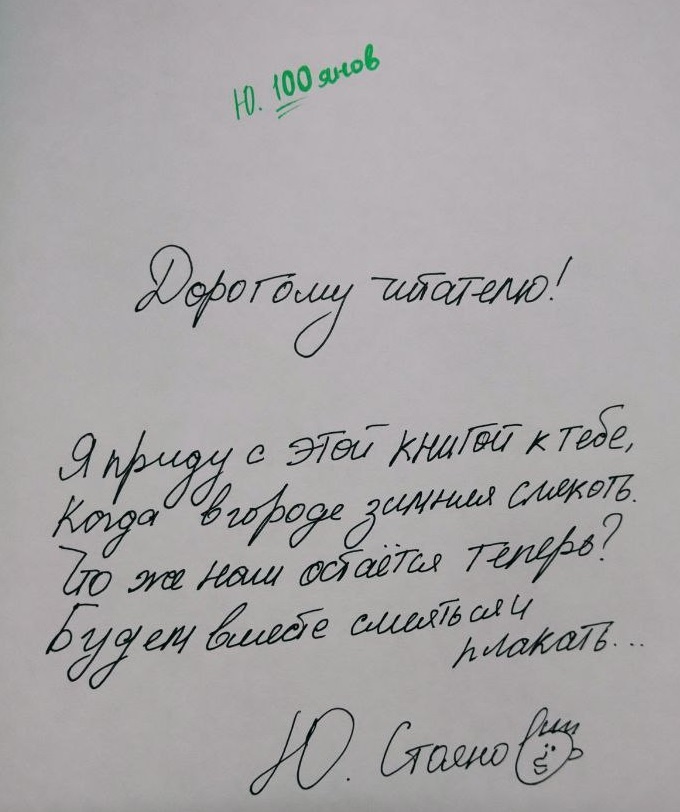 Ю. 100янов
Дорогому читателю!
Я приду с этой книгой к тебе,
Когда в городе зимняя слякоть.
Что же нам остаётся теперь?
Будем вместе смеяться и
плакать...
Ю. Стоянов